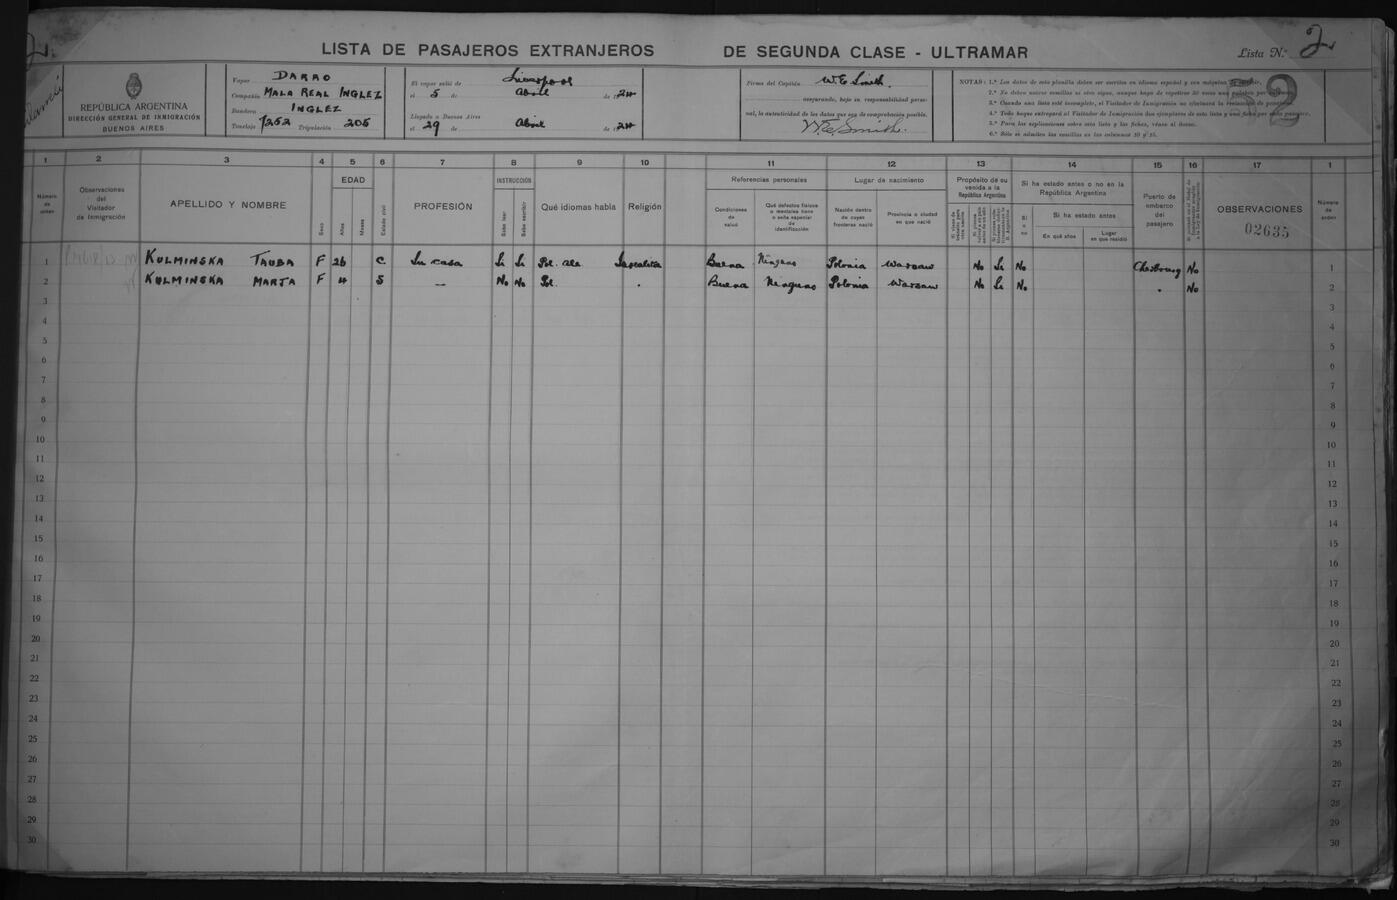 LISTA DE PASAJEROS EXTRANJEROS DE SEGUNDA CLASE - ULTRAMAR Lista N.° 2
REPÚBLICA ARGENTINA
DIRECCIÓN GENERAL DE INMIGRACIÓN
BUENOS AIRES
Vapor DARRO
Compañía MALA REAL INGLEZ
Bandera INGLEZ
Tonelaje 7252 Tripulación 205
El vapor salió de Liverpool
el 5 de Abril de 1924
Llegado a Buenos Aires
el 29 de Abril de 1924
Firma del Capitán W. E. Smith.
asegurando, bajo su responsabilidad perso-
nal, la autenticidad de los datos que son de comprobación posible.
W. E. Smith.
NOTAS: 1.ª Los datos de esta planilla deben ser escritos en idioma español y con máquina de
2.ª No deben usarse comillas ni otro signo, aunque haya de repetirse 30 veces una palabra por
3.ª Cuando una lista esté incompleta, el Visitador de Inmigración no efectuará la
4.ª Todo buque entregará al Visitador de Inmigración dos ejemplares de esta lista y una ficha por cada pasajero.
5.ª Para las explicaciones sobre esta lista y las fichas, véase al dorso.
6.ª Sólo se admiten las comillas en las columnas 10 y 15.
52
1 2 3 4 5 6 7 8 9 10 11 12 13 14 15 16 17 1
Número de orden
Observaciones del Visitador de Inmigración
APELLIDO Y NOMBRE
Sexo
EDAD
Años
Meses
Estado civil
PROFESIÓN
INSTRUCCIÓN
Sabe leer
Sabe escribir
Qué idiomas habla
Religión
Referencias personales
Condiciones de salud
Qué defectos físicos o mentales tiene o seña especial de identificación
Lugar de nacimiento
Nación dentro de cuyas fronteras nació
Provincia o ciudad en que nació
Propósito de su venida a la República Argentina
Si ha estado antes o no en la República Argentina
Si o no
Si ha estado antes
En qué años
Lugar en que residió
Puerto de embarco del pasajero
OBSERVACIONES
02635
Número de orden
1 KULMINSKA TAUBA F 26 C Su casa Si Si Pol. Ale Israelita Buena Ninguno Polonia Warsaw No Si No Cherbourg No 1
2 KULMINSKA MARTA F 4 S — No No Pol. Buena Ninguno Polonia Warsaw No Si No No 2
3 3
4 4
5 5
6 6
7 7
8 8
9 9
10 10
11 11
12 12
13 13
14 14
15 15
16 16
17 17
18 18
19 19
20 20
21 21
22 22
23 23
24 24
25 25
26 26
27 27
28 28
29 29
30 30